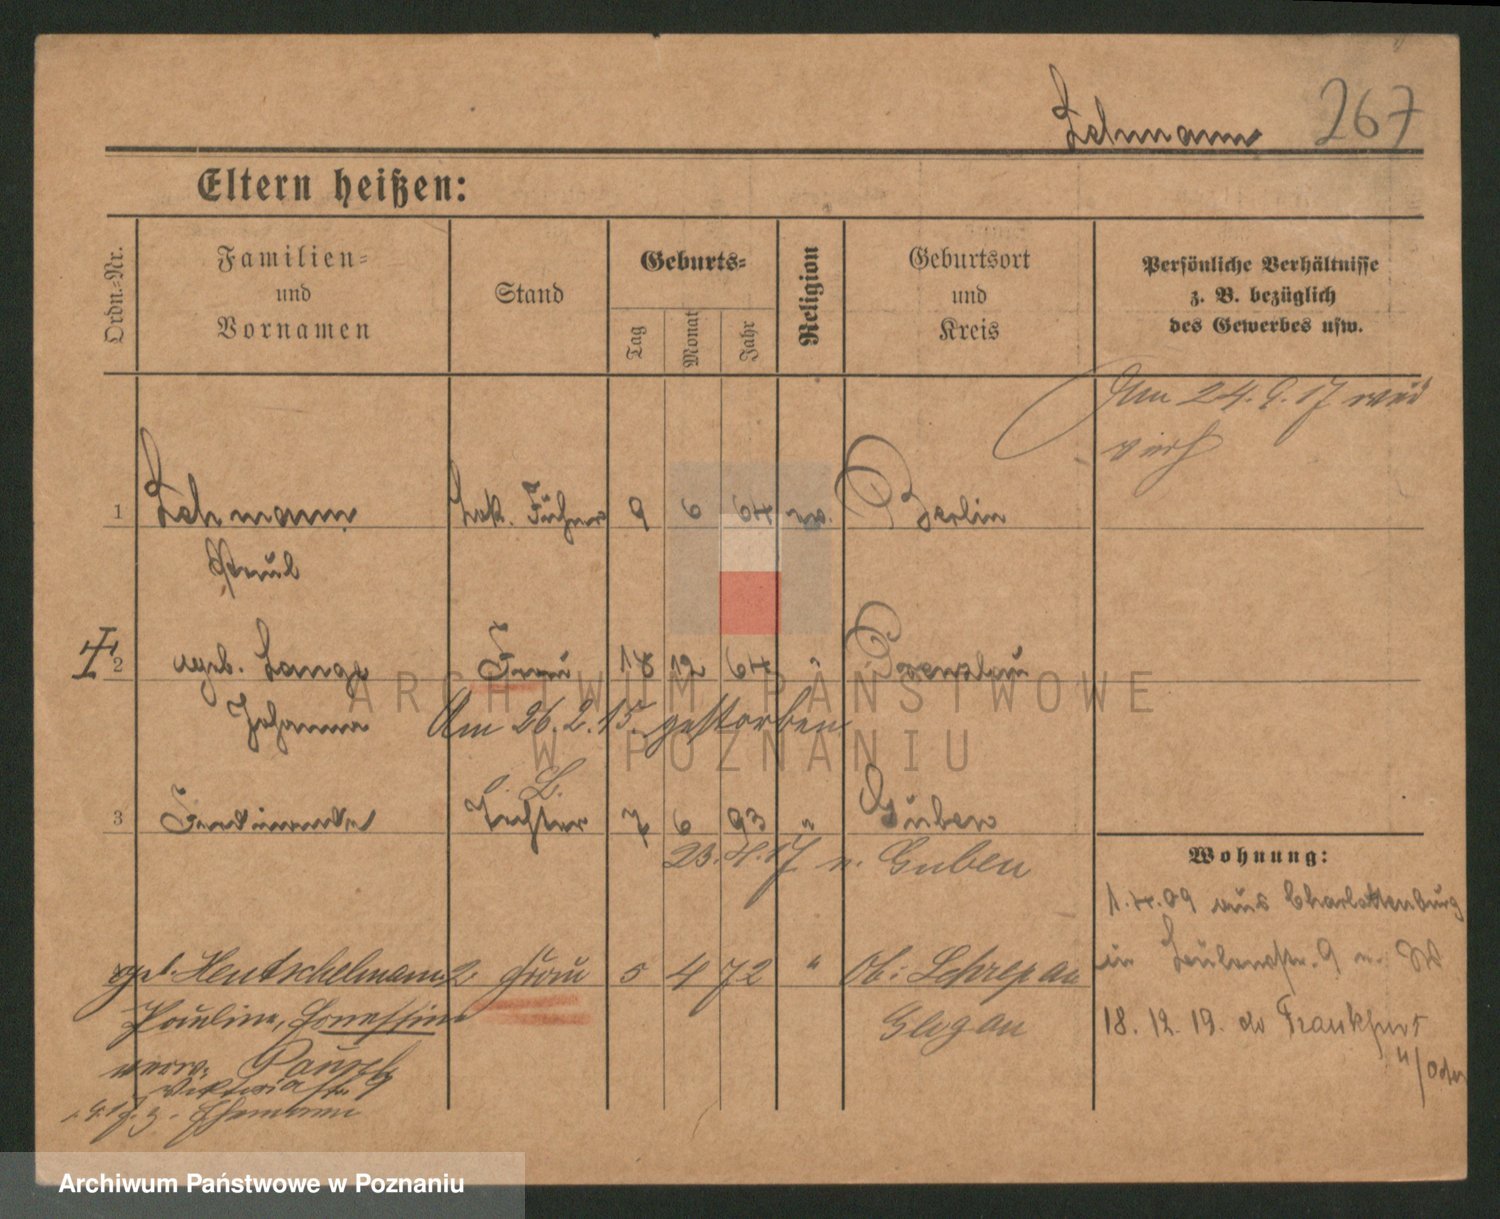 Lehmann 267
Eltern heißen:
Ordn.-Nr.
Familien-
und
Vornamen
Stand
Geburts-
Tag
Monat
Jahr
Religion
Geburtsort
und
Kreis
Persönliche Verhältnisse
z. B. bezüglich
des Gewerbes usw.
Am 24. 9. 17 wied
verh
1 Lehmann Lok. Führer 9 6 64 ev. Berlin
Paul
2 geb. Lange Frau 18 12 64 " Prenzlau
Johanna Am 26. 2. 15. gestorben
L.
3 Ferdinande Tochter 7 6 93 " Guben
23. 4. 17 n. Guben
Wohnung:
1. 4. 09 aus Charlottenburg
in 9
geb. Hentschelmann 2. Frau 5 4 72 " Ob: Schrepau
Pauline, Ernestine Glogau
18. 12. 19. do Frankfurt
a/Oder
verw:
Viktoriastr. 9
z. Ehemann
ARCHIWUM PAŃSTWOWE
W POZNANIU
Archiwum Państwowe w Poznaniu